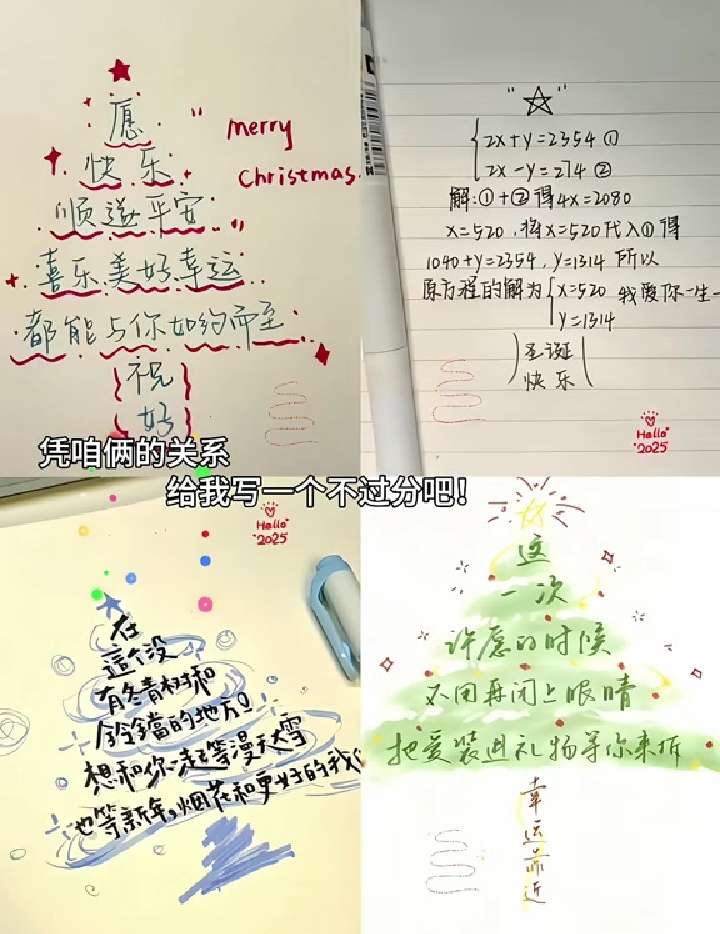 愿
快乐
顺遂平安
喜乐美好幸运
都能与你如约而至
祝
好
" merry
christmas.
"☆"
2x+y=2354 ①
2x-y=274 ②
解:①+②得4x=2080
x=520,将x=520代入①得
1040+y=2354,y=1314 所以
原方程的解为{x=520 我爱你一生一
y=1314
圣诞
快乐
Hello
2025
凭咱俩的关系
给我写一个不过分吧!
Hello
2025
在
這个没
有冬青树和
铃鐺的地方
想和你一起等漫天大雪
也等新年。烟花和更好的我们
这
一次
许愿的时候
不用再闭上眼睛
把爱装进礼物等你来拆
幸运靠近